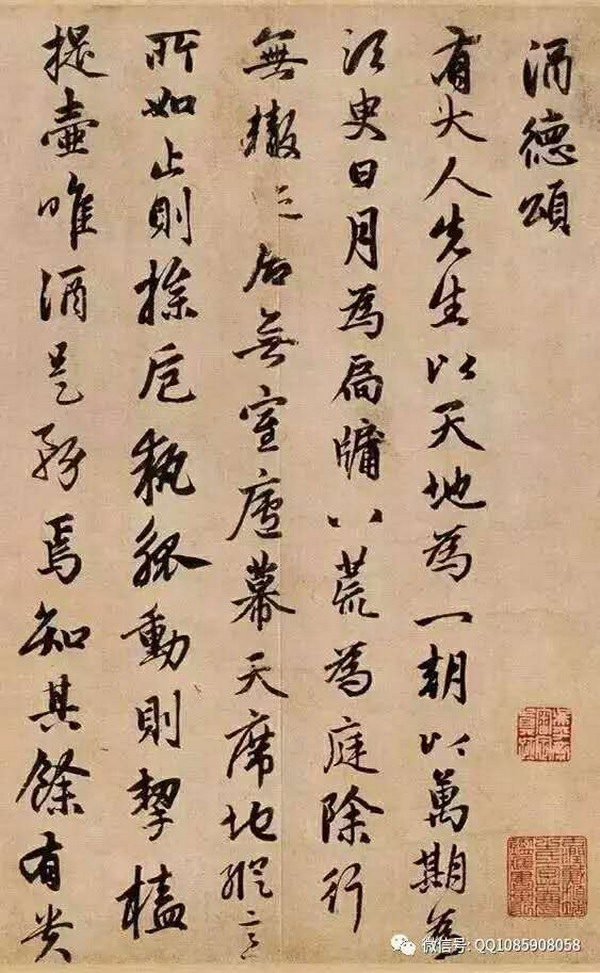 酒德頌
有大人先生以天地為一朝以萬期為
須臾日月為扃牖八荒為庭除行
無轍迹居無室廬幕天席地縱意
所如止則操卮執觚動則挈榼
提壺唯酒是務焉知其餘有貴
微信号: QQ1085908058